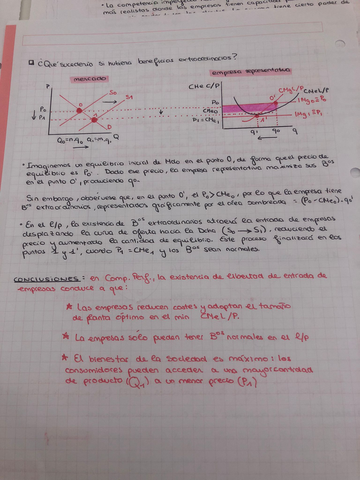 • La competencia
más realistas donde las empresas tienen
¿Qué sucedería si hubiera beneficios extraordinarios?
mercado
empresa representativa
P
S0
S1
P0
P1
0
1
D
Q
CMe C/P
CMg L/P
CMeL/P
IMg0=P0
IMg1=P1
P0
CMe0
P1=CMe1
0'
1'
q1
q0
q
• Imaginemos un equilibrio inicial de Mdo en el punto 0, de forma que el precio de
equilibrio es P0. Dado ese precio, la empresa representativa maximiza sus Bos
en el punto 0', produciendo q0.
Sin embargo, observese que, en el punto 0', el P0>CMe0, por lo que la empresa tiene
Bos extraordinarios, representados gráficamente por el área sombreada: (P0-CMe0)·q0'
• En el l/p, la existencia de Bos extraordinarios atraerá la entrada de empresas
desplazando la curva de oferta hacia la Dcha (S0 → S1), reduciendo el
precio y aumentando la cantidad de equilibrio. Este proceso finalizará en los
puntos 1 y 1', cuando P1 = CMe1 y los Bos sean normales.
CONCLUSIONES: en Comp. Perf., la existencia de libertad de entrada de
empresas conduce a que:
* Las empresas reducen costes y adoptan el tamaño
de planta óptimo en el mín CMeL/P.
* La empresa sólo pueden tener Bos normales en el l/p
* El bienestar de la sociedad es máximo: los
consumidores pueden acceder a una mayor cantidad
de producto (Q1) a un menor precio (P1)